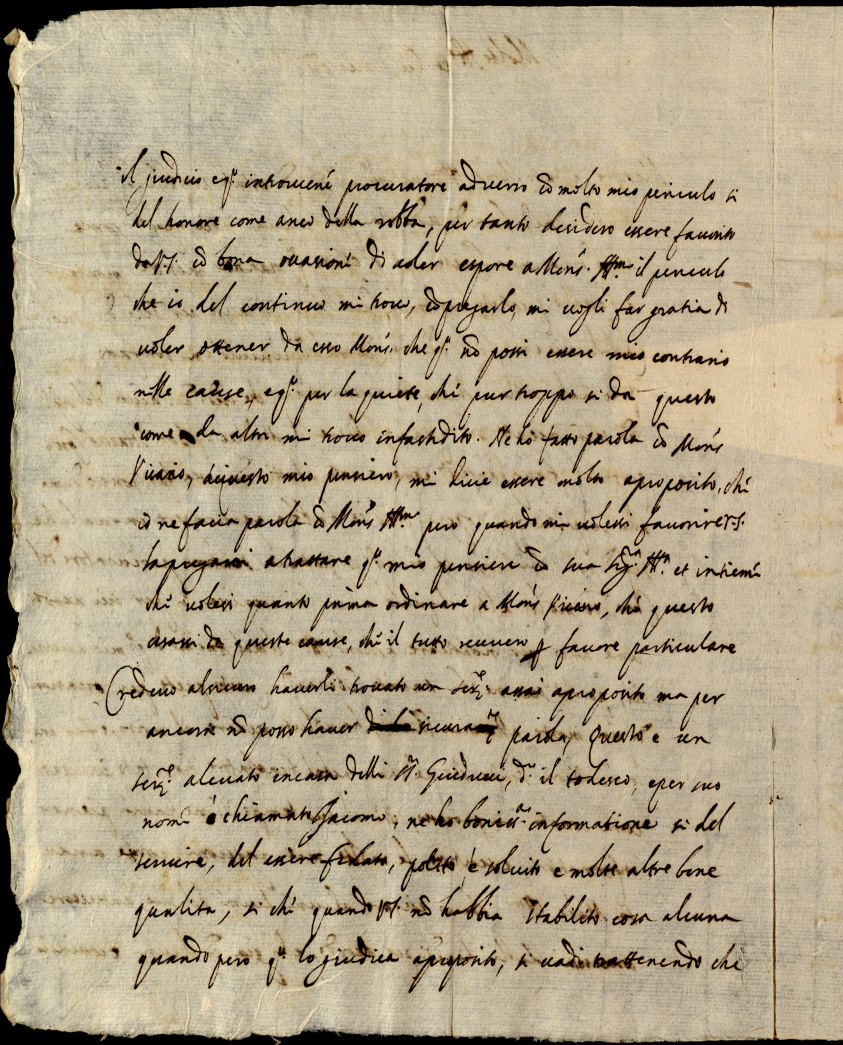 il giudicio e q.to intravenè procuratore adverso cõ molto mio periculo si
del honore come anco della robba, per tanto desidero essere favorito
da V.S. cõ bona occasione di voler espore a Mons. Ill.mo il periculo
che io del continuo mi trovo, cõ pregarlo, mi vogli far gratia di
voler ottener da esso Mons. che q.to nõ possi essere mio contrario
nelle cause, e q.to per la quiete, chè pur troppo si da questo
come da altri mi trovo infastidito. Ne ho fatto parola cõ Mons.
Vicario, di questo mio pensiero, mi dicie essere molto aproposito, chè
io ne facia parola cõ Mons. Ill.mo però quando mi volessi favorire V.S.
la pregarei a trattare q.to mio pensiero cõ sua Sig.ria Ill.ma et insiemè
chè volessi quanto prima ordinare a Mons. Vicario, chè questo
cassassi da queste cause, chè il tutto ricevero p favore particulare
Credevo al sicuro haverli trovato un ser.re assai aproposito ma per
ancora nõ posso haver sicura parola, Questo è un
ser.re alevato in casa delli SS.ri Guiducci, d.to il todesco, e per suo
nomè è chiamato Jacomo, ne ho boniss.ma informatione si del
servire, del essere fidato, polito, e solicito e molte altre bone
qualita, si chè quando V.S. nõ habbia stabilito cosa alcuna
quando però q.to lo giudica aproposito, si vadi trattenendo che